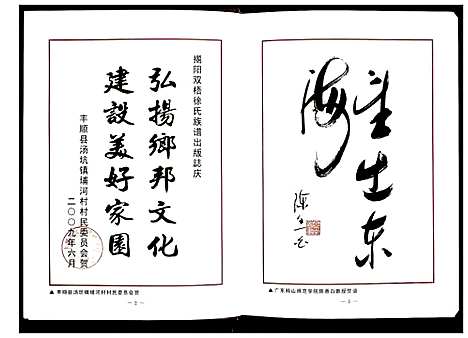 揭阳双梧徐氏族谱出版誌庆
弘揚鄉邦文化
建設美好家園
丰顺县汤坑镇埔河村村民委员会贺
二〇〇九年六月
▲丰顺县汤坑镇埔河村村民委员会贺
望出东
海
▲广东韩山师范学院陈香白教授贺词